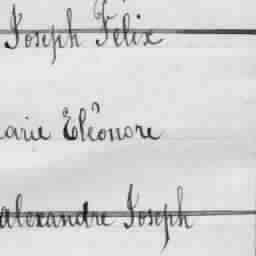 Joseph Félix
arie Eléonore
alexandre Joseph